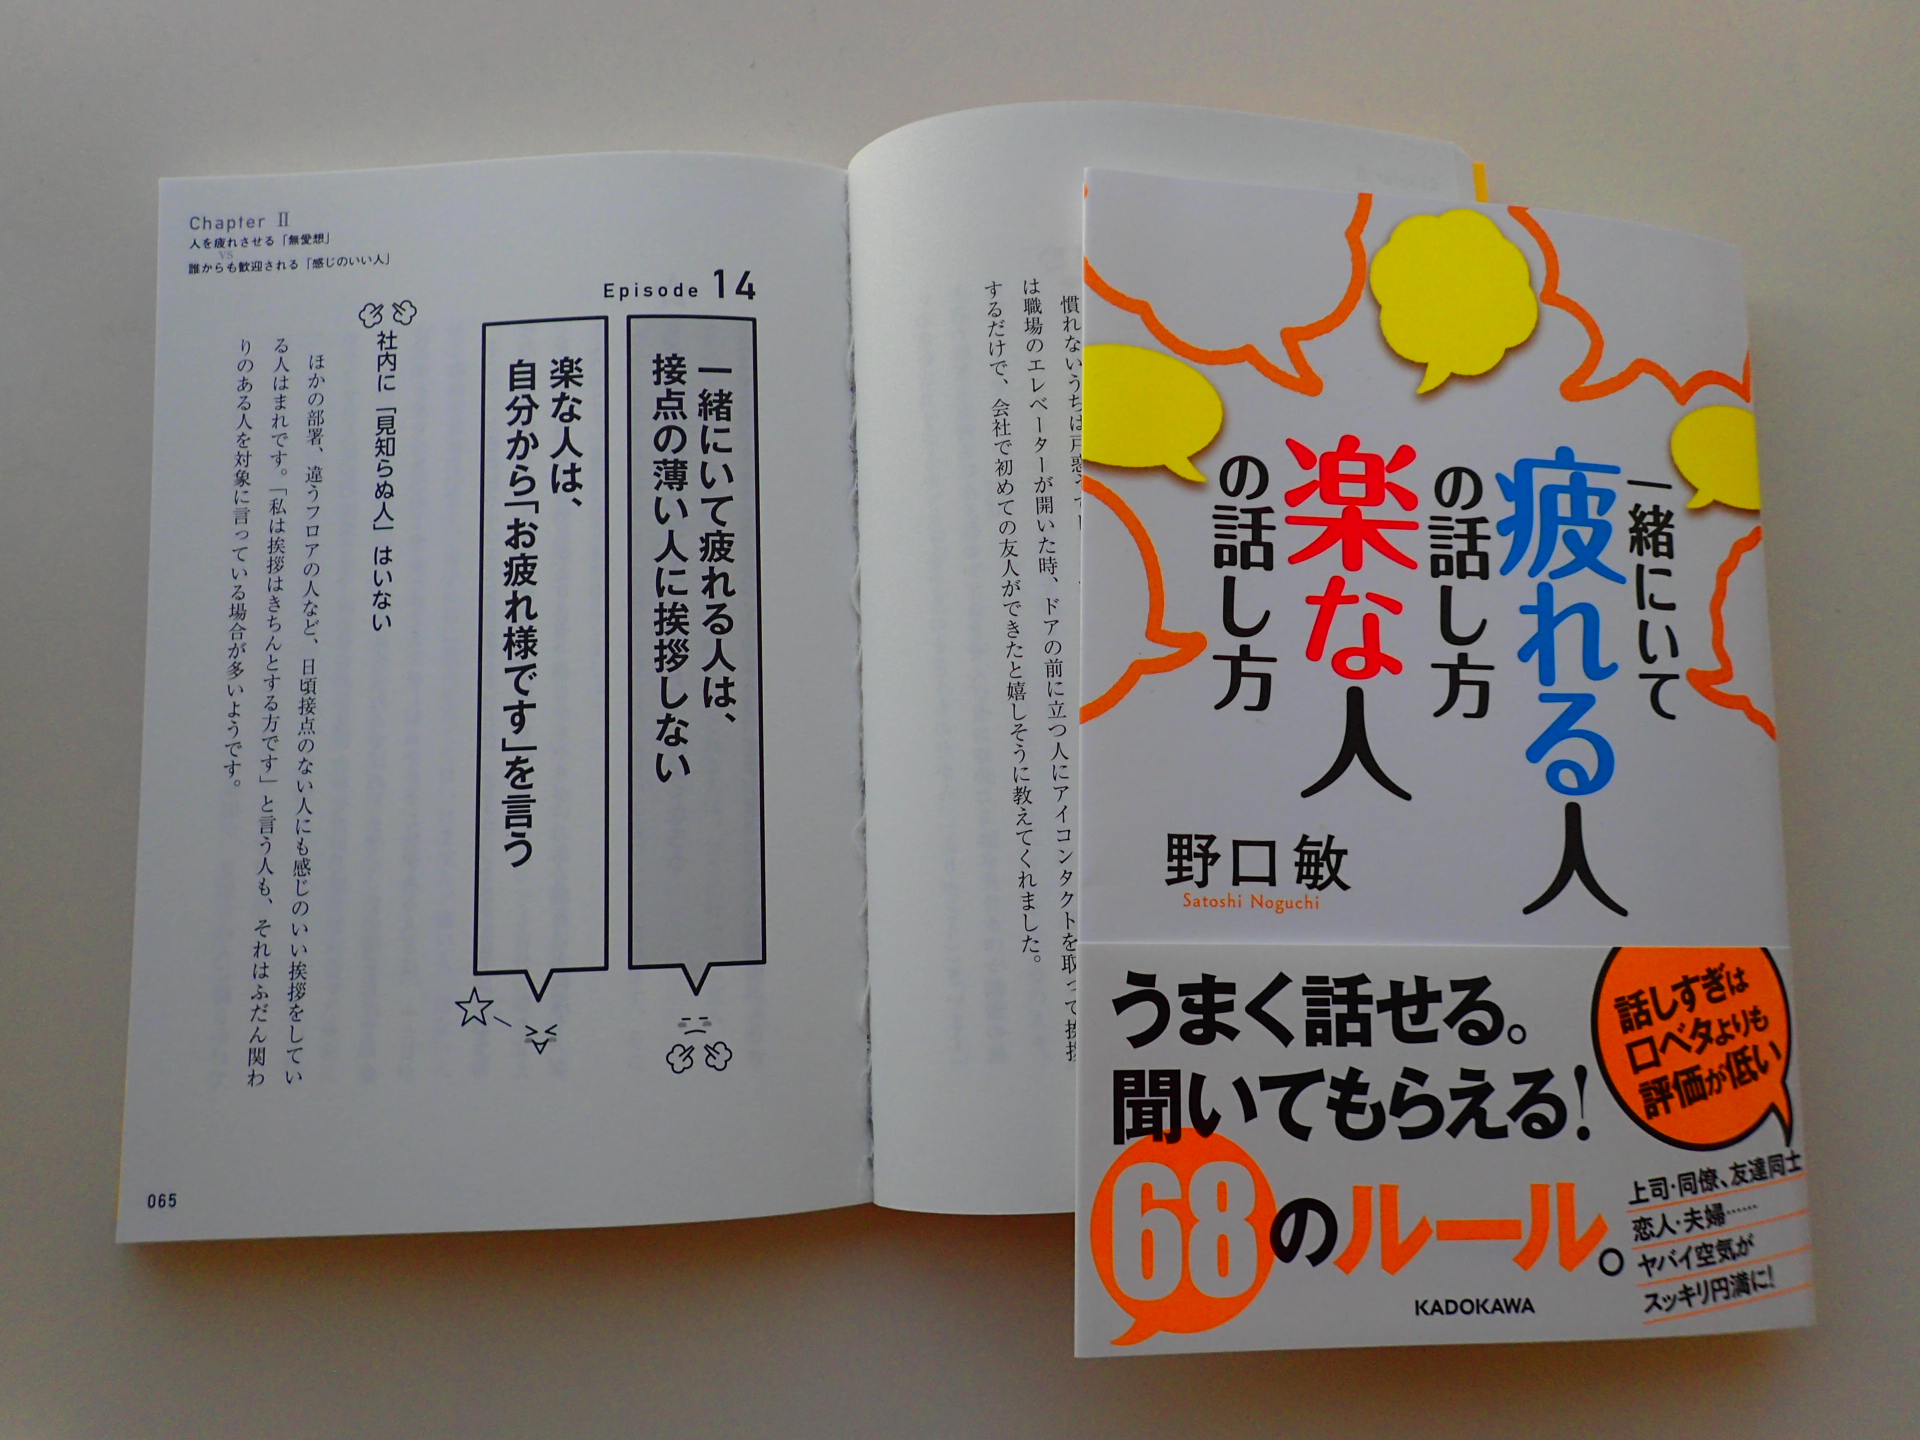 Chapter Ⅱ
人を疲れさせる「無愛想」
VS
誰からも歓迎される「感じのいい人」
Episode 14
一緒にいて疲れる人は、
接点の薄い人に挨拶しない
楽な人は、
自分から「お疲れ様です」を言う
社内に「見知らぬ人」はいない
ほかの部署、違うフロアの人など、日頃接点のない人にも感じのいい挨拶をしてい
る人はまれです。「私は挨拶はきちんとする方です」と言う人も、それはふだん関わ
りのある人を対象に言っている場合が多いようです。
065
慣れないうちは戸惑
は職場のエレベーターが開いた時、ドアの前に立つ人にアイコンタクトを取って挨拶
するだけで、会社で初めての友人ができたと嬉しそうに教えてくれました。
一緒にいて
疲れる人
の話し方
楽な人
の話し方
野口敏
Satoshi Noguchi
うまく話せる。
聞いてもらえる!
68のルール。
話しすぎは
口ベタよりも
評価が低い
上司・同僚、友達同士
恋人・夫婦……
ヤバイ空気が
スッキリ円満に!
KADOKAWA